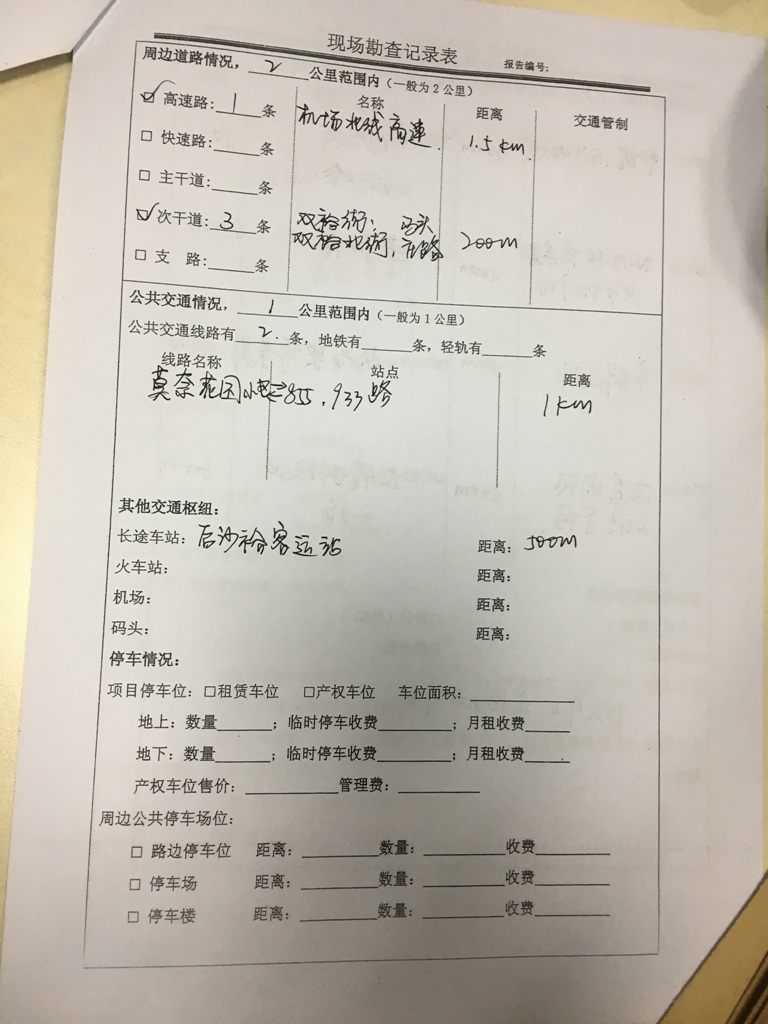 现场勘查记录表
报告编号:
周边道路情况，2公里范围内（一般为2公里）
名称 距离 交通管制
☑ 高速路: 1 条 机场北线高速. 1.5km.
□ 快速路:______条
□ 主干道:______条
☑ 次干道: 3 条 双裕街, 马头
双裕北街, 庄路 200m
□ 支 路:______条
公共交通情况，1公里范围内（一般为1公里）
公共交通线路有 2. 条，地铁有______条，轻轨有______条
线路名称 站点 距离
莫奈花园小 855, 933路 1km
其他交通枢纽:
长途车站: 后沙峪客运站 距离: 500m
火车站: 距离:
机场: 距离:
码头: 距离:
停车情况:
项目停车位: □租赁车位 □产权车位 车位面积:____________
地上: 数量______; 临时停车收费________; 月租收费_____
地下: 数量______; 临时停车收费________; 月租收费_____
产权车位售价:__________管理费:_________
周边公共停车场位:
□ 路边停车位 距离:________数量:________收费________
□ 停车场 距离:________数量:________收费________
□ 停车楼 距离:________数量:________收费________